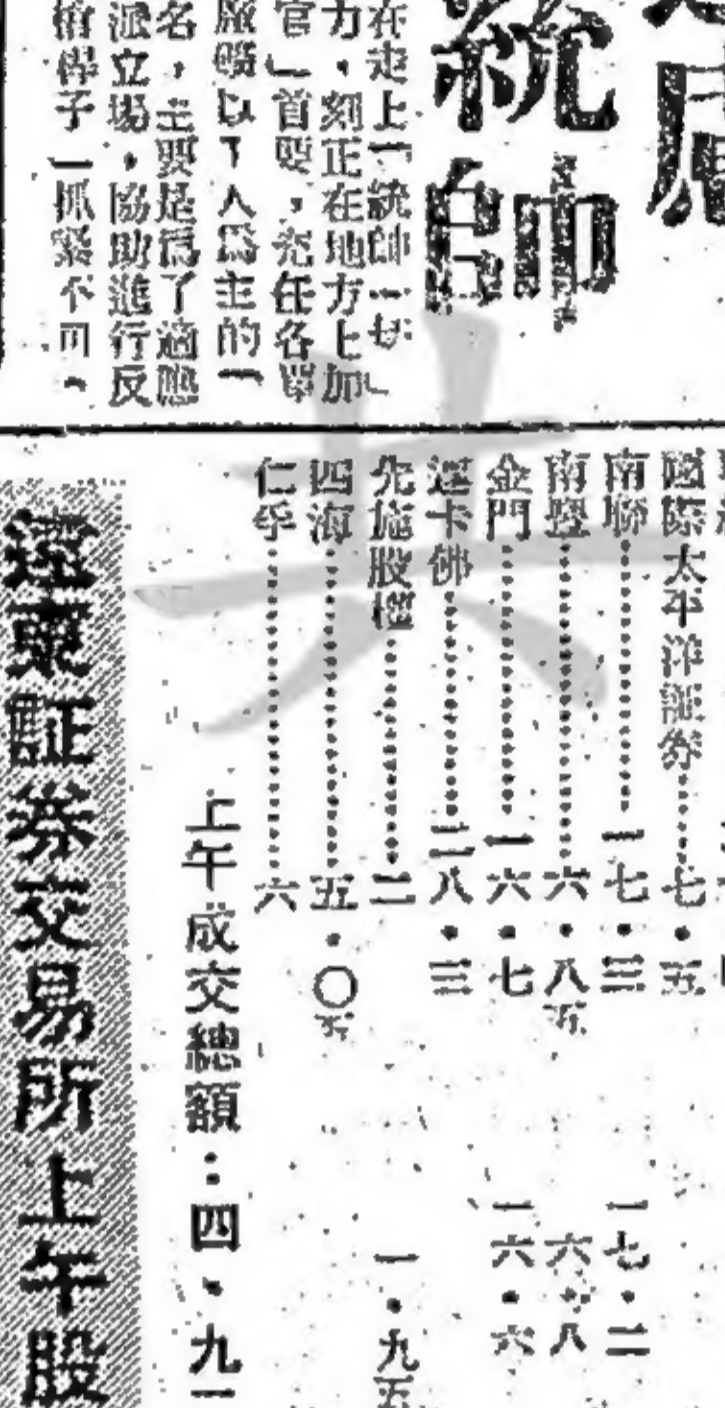 統帥
在走上「統帥一切」
力，刻正在地方上加
官」首要，充任各單
以下人為主的「
名，主要是為了適應
派立場，協助進行反
桿子」抓緊不可。
國際太平洋証券……七·五
南聯……一七·三 一七·二
南豐……六·八五 六·八
金門……一六·七 一六·六
連卡佛……二八·三
先施股權……二 一·九五
四海……五·〇五
仁孚……六
上午成交總額：四、九一
遠東証券交易所上午股